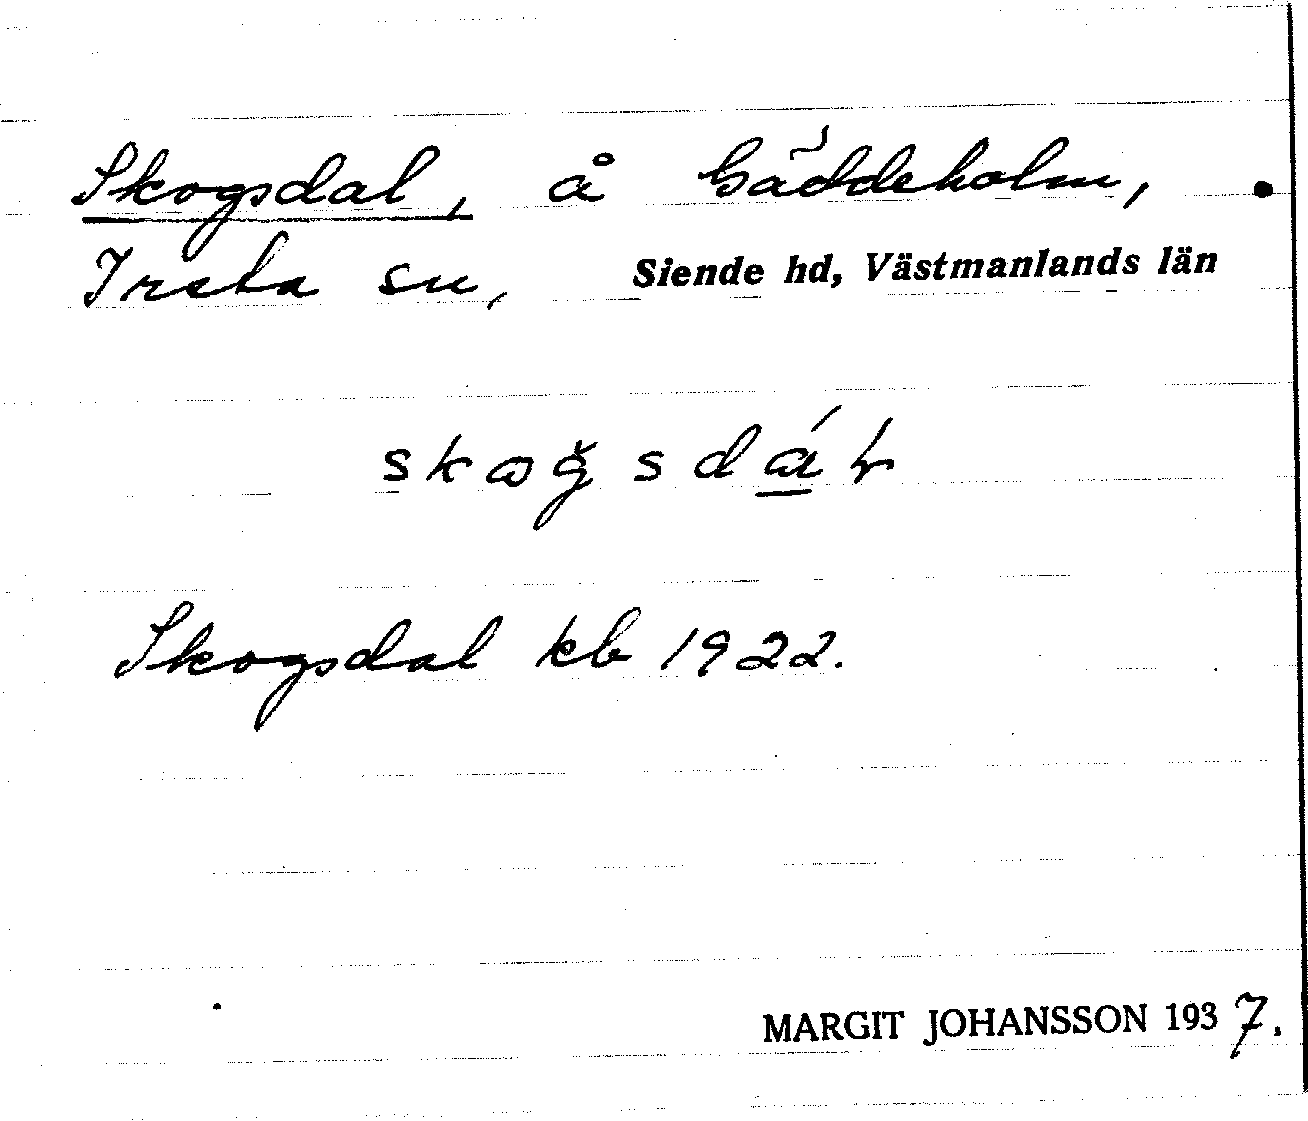 Skogsdal, å Gäddeholm,
Irsta sn, Siende hd, Västmanlands län
Skogsdal kb 1922.
MARGIT JOHANSSON 1937.